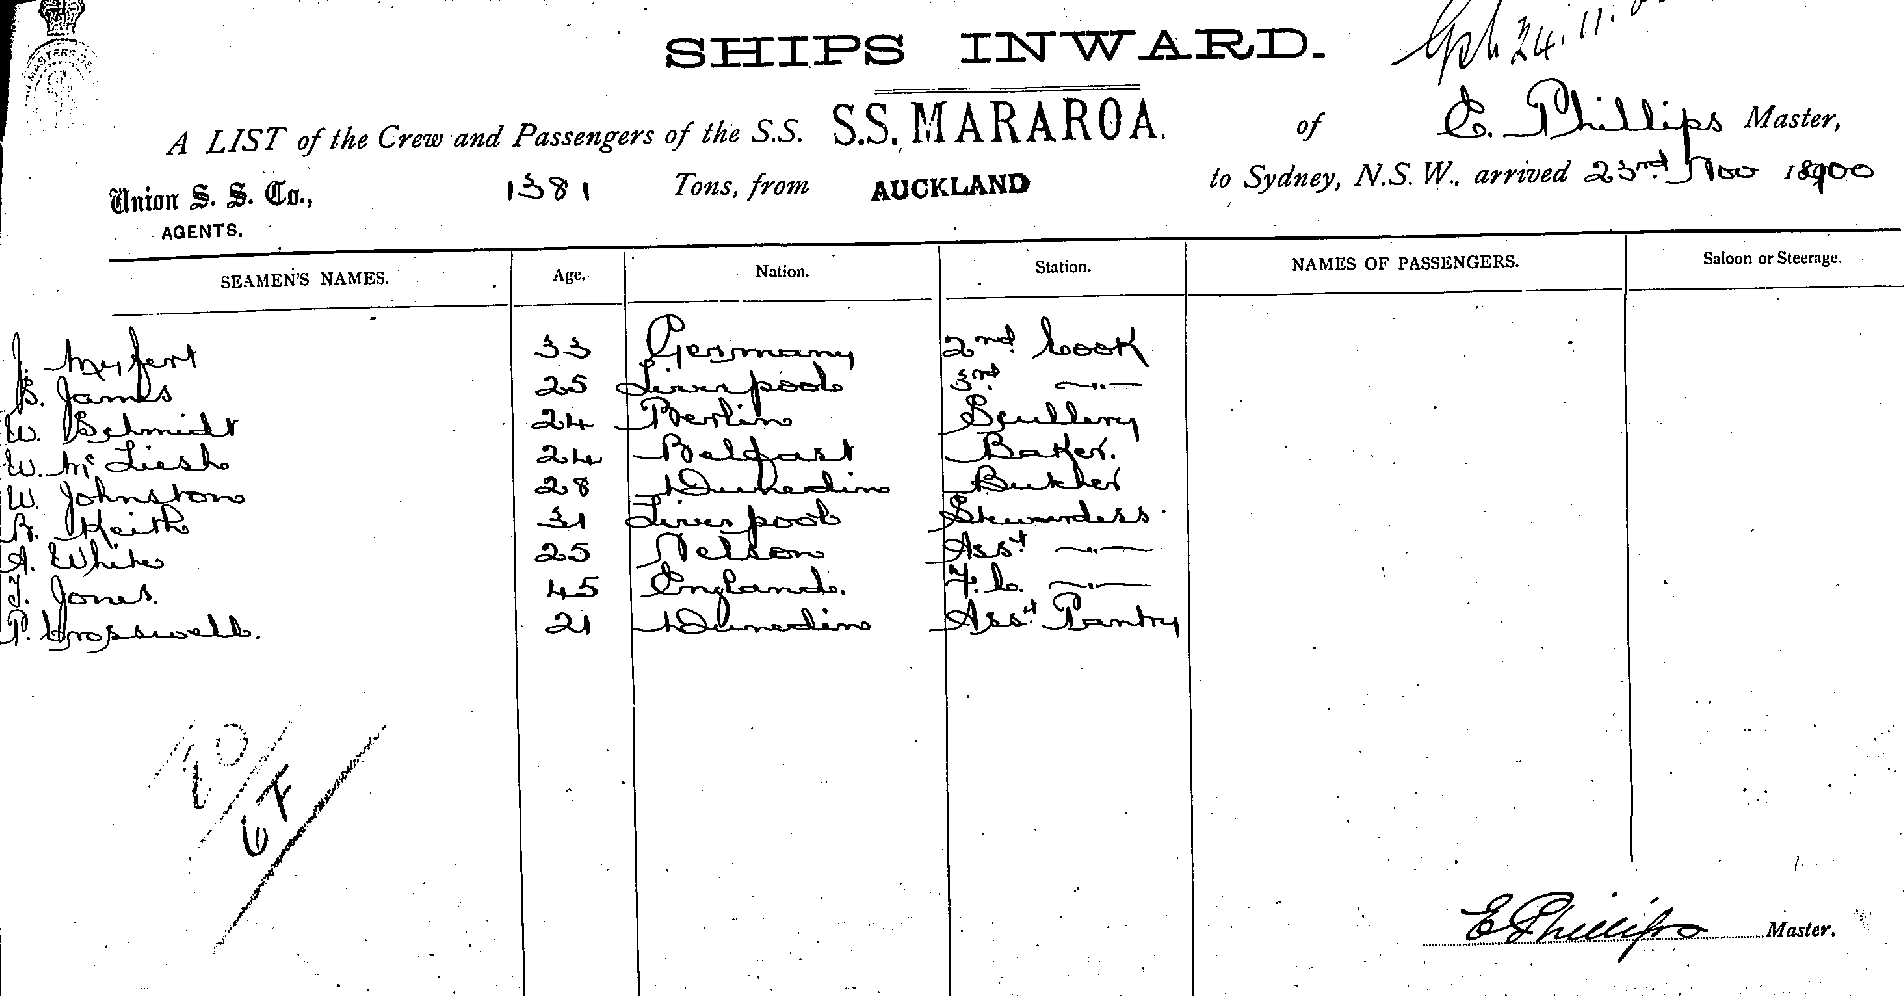 SHIPS INWARD.
24.11.
A LIST of the Crew and Passengers of the S.S. S.S. MARAROA. of E. Phillips Master,
Union S. S. Co., 1381 Tons, from AUCKLAND to Sydney, N.S.W., arrived 23rd Nov 1900
AGENTS.
SEAMEN'S NAMES. Age. Nation. Station. NAMES OF PASSENGERS. Saloon or Steerage.
J. Meyfert 33 Germany 2nd Cook
B. James 25 Liverpool 3rd —"—
W. Schmidt 24 Berlin Scullery
W. McLiesh 24 Belfast Baker.
W. Johnston 28 Dunedin Butcher
R. Keith 31 Liverpool Stewardess
A. White 25 Nelson Asst —"—
J. Jones. 45 England. F.C. —"—
P. Crosswell. 21 Dunedin Asst Pantry
E Phillips Master.